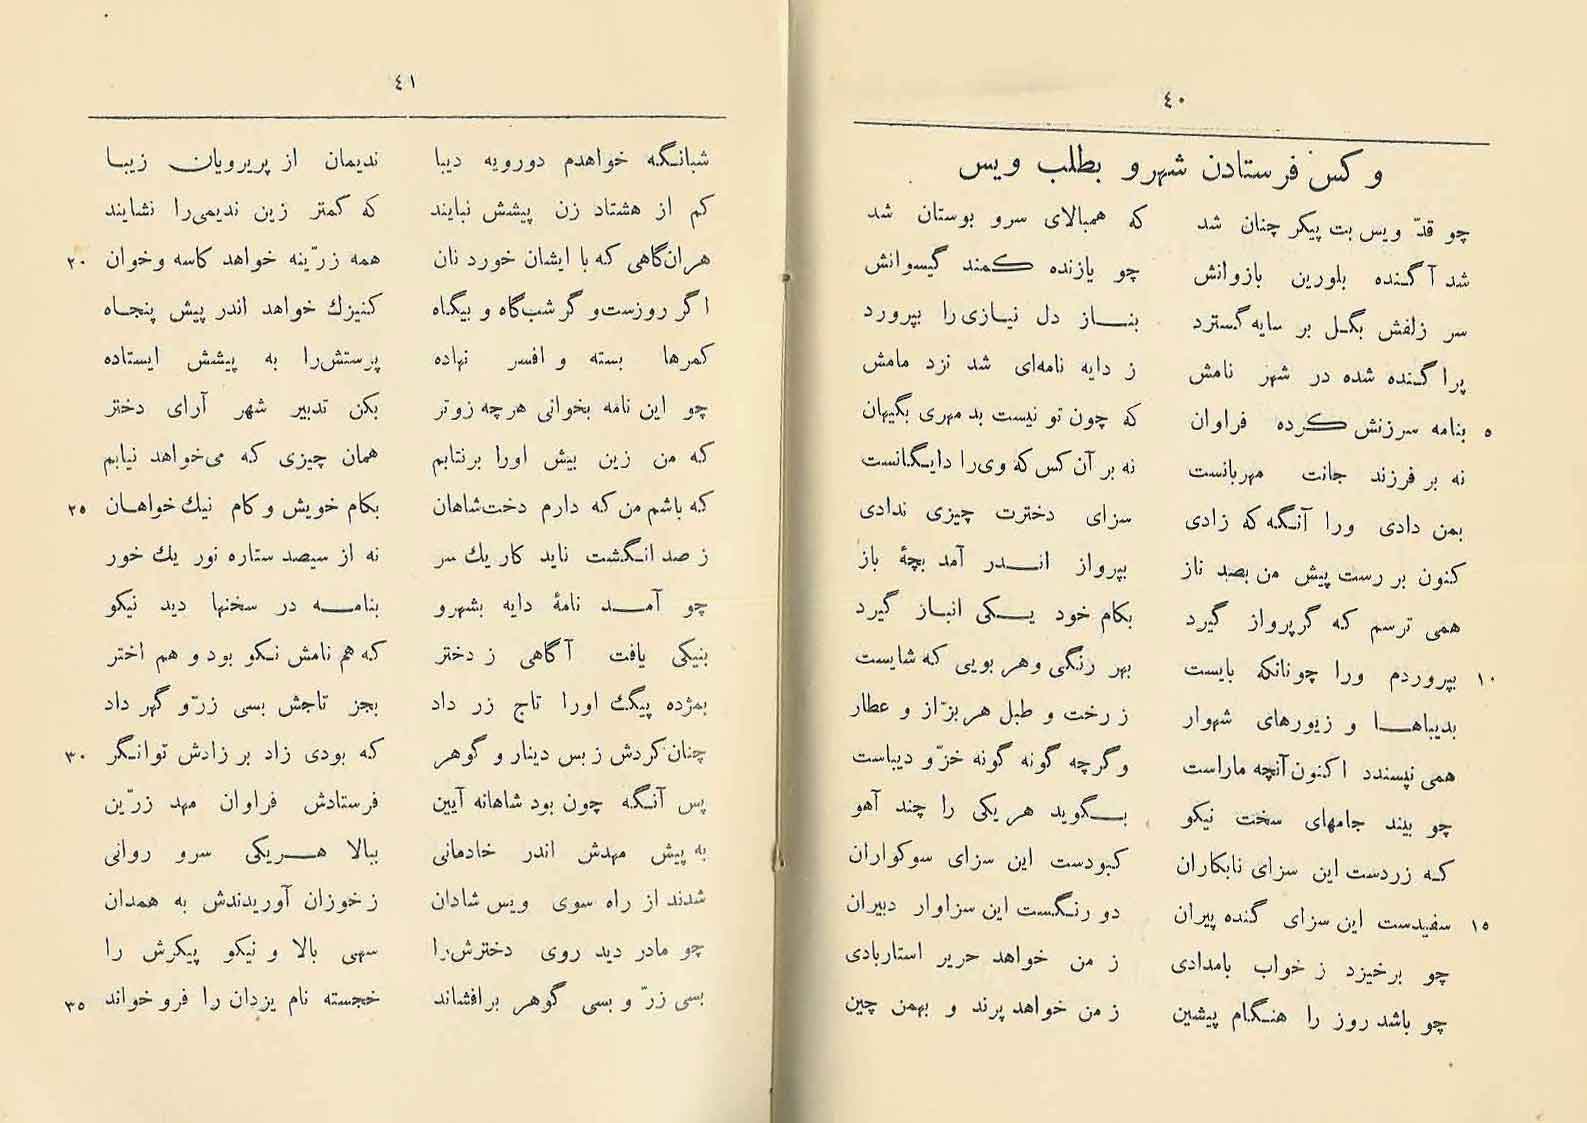 ٤٠
و کس فرستادن شهرو بطلب ویس
چو قدّ ویس بت پیکر چنان شد که همبالای سرو بوستان شد
شد آگنده بلورین بازوانش چو یازنده کمند گیسوانش
سر زلفش بگل بر سایه گسترد بناز دل نیازی را بپرورد
پراگنده شده در شهر نامش ز دایه نامه‌ای شد نزد مامش
٥ بنامه سرزنش کرده فراوان که چون تو نیست بد مهری بگیهان
نه بر فرزند جانت مهربانست نه بر آن کس که وی را دایگانست
بمن دادی ورا آنگه که زادی سزای دخترت چیزی ندادی
کنون بر رست پیش من بصد ناز بپرواز اندر آمد بچهٔ باز
همی ترسم که گر پرواز گیرد بکام خود یکی انباز گیرد
١٠ بپروردم ورا چونانکه بایست بهر رنگی و هر بویی که شایست
بدیباها و زیورهای شهوار ز رخت و طبل هر بزّاز و عطار
همی نپسندد اکنون آنچه ماراست وگرچه گونه گونه خزّ و دیباست
چو بیند جامهای سخت نیکو بگوید هر یکی را چند آهو
که زردست این سزای نابکاران کبودست این سزای سوکواران
١٥ سفیدست این سزای گنده پیران دو رنگست این سزاوار دبیران
چو برخیزد ز خواب بامدادی ز من خواهد حریر استاربادی
چو باشد روز را هنگام پیشین ز من خواهد پرند و بهمن چین
٤١
شبانگه خواهدم دورویه دیبا ندیمان از پریرویان زیبا
کم از هشتاد زن پیشش نبایند که کمتر زین ندیمی را نشایند
٢٠ هران‌گاهی که با ایشان خورد نان همه زرّینه خواهد کاسه وخوان
اگر روزست و گر شب‌گاه و بیگاه کنیزك خواهد اندر پیش پنجاه
کمرها بسته و افسر نهاده پرستش‌را به پیشش ایستاده
چو این نامه بخوانی هرچه زوتر بکن تدبیر شهر آرای دختر
که من زین بیش اورا برنتابم همان چیزی که می‌خواهد نیابم
٢٥ که باشم من که دارم دخت‌شاهان بکام خویش و کام نیك خواهان
ز صد انگشت ناید کار یك سر نه از سیصد ستاره نور یك خور
چو آمد نامهٔ دایه بشهرو بنامه در سخنها دید نیکو
بنیکی یافت آگاهی ز دختر که هم نامش نکو بود و هم اختر
بمژده پیگ اورا تاج زر داد بجز تاجش بسی زرّ و گهر داد
٣٠ چنان کردش ز بس دینار و گوهر که بودی زاد بر زادش توانگر
پس آنگه چون بود شاهانه آیین فرستادش فراوان مهد زرّین
به پیش مهدش اندر خادمانی ببالا هریکی سرو روانی
شدند از راه سوی ویس شادان ز خوزان آوریدندش به همدان
چو مادر دید روی دخترش‌را سهی بالا و نیکو پیکرش را
٣٥ بسی زرّ و بسی گوهر برافشاند خجسته نام یزدان را فرو خواند